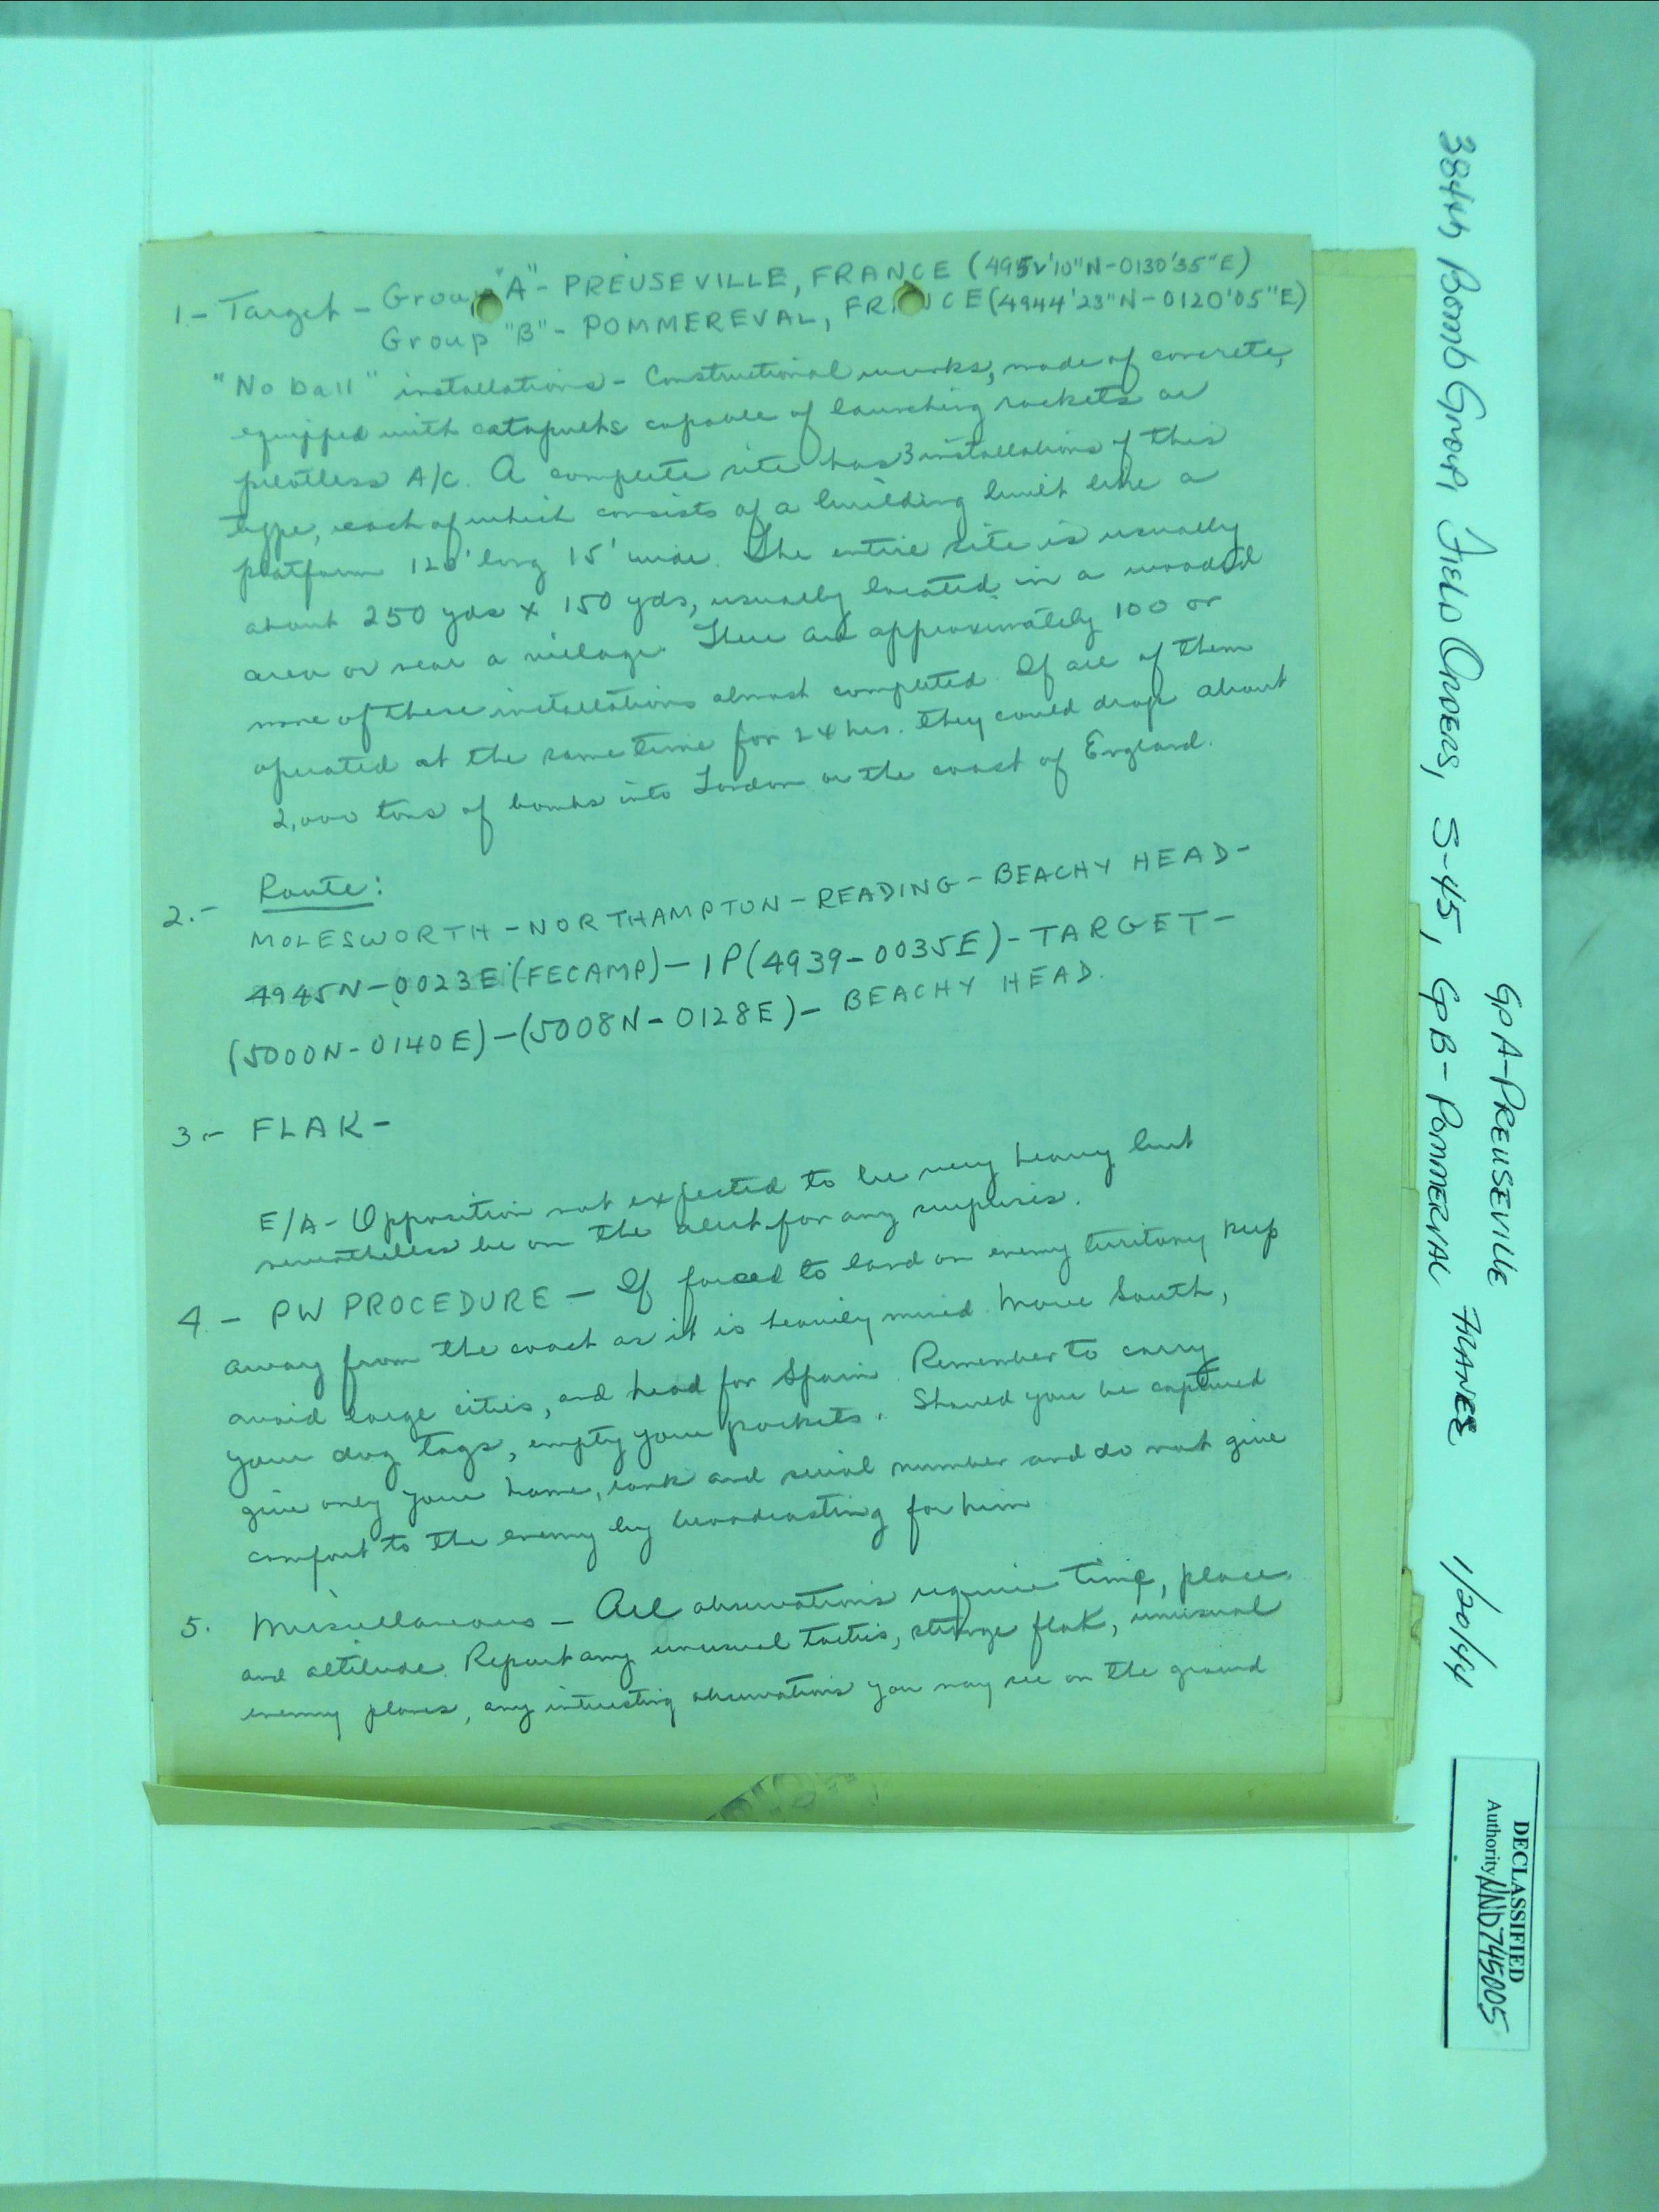 1.- Target - Group "A" - PREUSEVILLE, FRANCE (4952'10"N-0130'35"E)
Group "B" - POMMEREVAL, FRANCE (4944'23"N-0120'05"E)
"No ball" installations - Constructional works, made of concrete,
equipped with catapults capable of launching rockets or
pilotless A/C. A complete site has 3 installations of this
type, each of which consists of a building built like a
platform 120' long 15' wide. The entire site is usually
about 250 yds x 150 yds, usually located in a wooded
area or near a village. There are approximately 100 or
more of these installations almost completed. If all of them
operated at the same time for 24 hrs. they could drop about
2,000 tons of bombs into London or the coast of England.
2.- Route:
MOLESWORTH - NORTHAMPTON - READING - BEACHY HEAD -
4945N-0023E (FECAMP) - IP (4939-0035E) - TARGET -
(5000N-0140E) - (5008N-0128E) - BEACHY HEAD.
3.- FLAK -
E/A - Opposition not expected to be very heavy but
nevertheless be on the alert for any surprises.
4.- PW PROCEDURE - If forced to land on enemy territory keep
away from the coast as it is heavily mined. Move South,
avoid large cities, and head for Spain. Remember to carry
your dog tags, empty your pockets. Should you be captured
give only your name, rank and serial number and do not give
comfort to the enemy by broadcasting for him
5. Miscellaneous - All observations require time, place
and altitude. Report any unusual tactics, strange flak, unusual
enemy planes, any interesting observations you may see on the ground
GP A-PREUSEVILLE
384th Bomb Group, Field Orders, S-45, GP B- POMMERVAL FRANCE 1/20/44
DECLASSIFIED
Authority NND745005